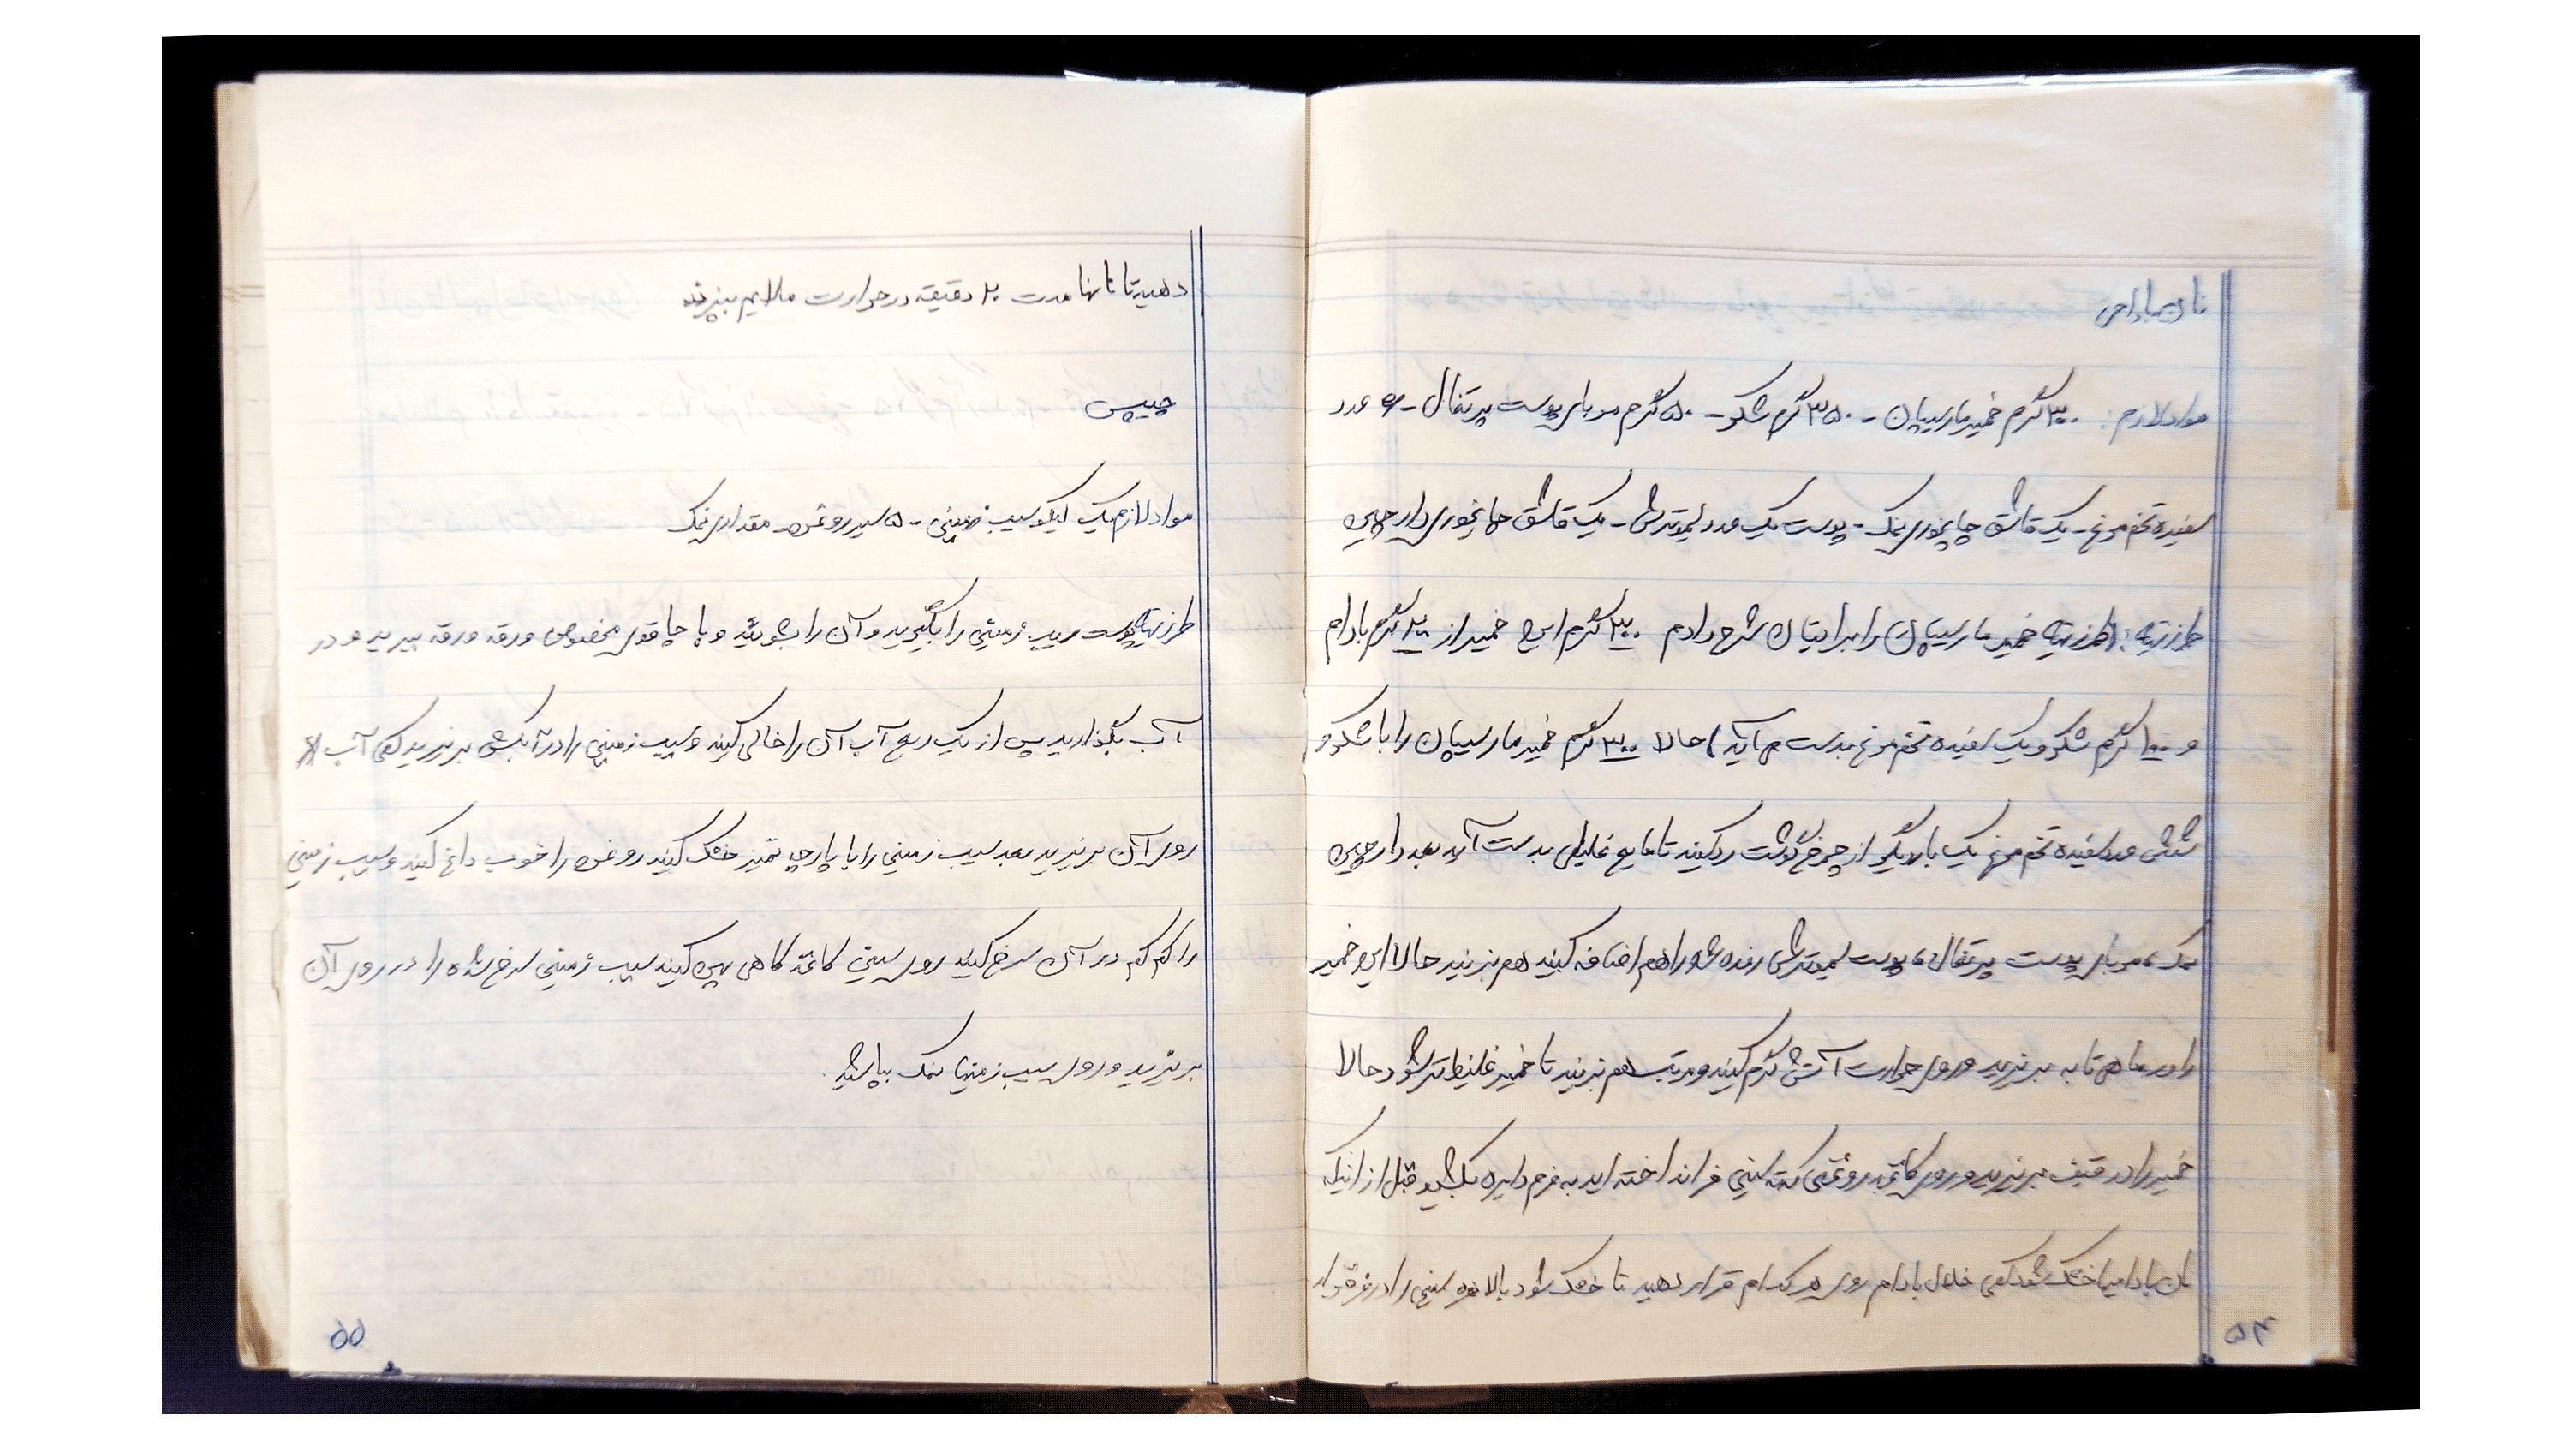 نان بادامی
مواد لازم: ۳۰۰ گرم خمیر مارسیپان - ۳۵۰ گرم شکر - ۵۰ گرم مربای پوست پرتقال - ۶ عدد
سفیده تخم مرغ - یک قاشق چایخوری نمک - پوست یک عدد لیموترش - یک قاشق چایخوری دارچین
طرز تهیه: (طرز تهیه خمیر مارسیپان را برایتان شرح دادم ۳۰۰ گرم این خمیر از ۲۰۰ گرم بادام
و ۱۰۰ گرم شکر و یک سفیده تخم مرغ بدست می آید) حالا ۳۰۰ گرم خمیر مارسیپان را با شکر و
شش عدد سفیده تخم مرغ یک بار دیگر از چرخ گوشت رد کنید تا مایع غلیظی بدست آید بعد دارچین
نمک، مربای پوست پرتقال، پوست لیموترش رنده شده را هم اضافه کنید هم بزنید حالا این خمیر
را در ماهی تابه بریزید و روی حرارت آتش گرم کنید و مرتب هم بزنید تا خمیر غلیظ تر شود حالا
خمیر را در قیف بریزید و روی کاغذ روغنی که ته سینی فر انداخته اید به فرم دایره بکشید قبل از اینکه
نان بادامیها خشک شود کمی خلال بادام روی هر کدام قرار دهید تا خشک شود بالاخره سینی را در فر قرار
۵۴
دهید تا نانها مدت ۲۰ دقیقه در حرارت ملایم بپزند
چیپس
مواد لازم یک کیلو سیب زمینی - ۵ سیر روغن - مقداری نمک
طرز تهیه پوست سیب زمینی را بگیرید و آن را بشوئید و با چاقوی مخصوص ورقه ورقه ببرید و در
آب بگذارید پس از یک ربع آب آن را خالی کنید و سیب زمینی را در آبکش بریزید کمی آب
روی آن بریزید بعد سیب زمینی را با پارچه تمیز خشک کنید روغن را خوب داغ کنید و سیب زمینی
را کم کم در آن سرخ کنید روی سینی کاغذ کاهی پهن کنید سیب زمینی سرخ شده را در روی آن
بریزید و روی سیب زمینیها نمک بپاشید.
۵۵